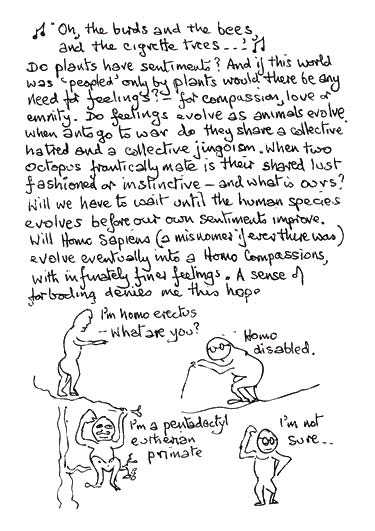 "Oh, the birds and the bees,
and the cigrette trees...!"
Do plants have sentiments? And if this world
was 'peopled' only by plants would there be any
need for feelings? – for compassion, love or
enmity. Do feelings evolve as animals evolve
when ants go to war do they share a collective
hatred and a collective jingoism. When two
octopus frantically mate is their shared lust
fashioned or instinctive – and what is ours?
Will we have to wait until the human species
evolves before our own sentiments improve.
Will Homo Sapiens (a misnomer if ever there was)
evolve eventually into a Homo Compassions,
with infinately finer feelings. A sense of
forboding denies me this hope
I'm homo erectus
– what are you?
Homo
disabled.
I'm a pentadactyl
eutherian
primate
I'm not
sure...